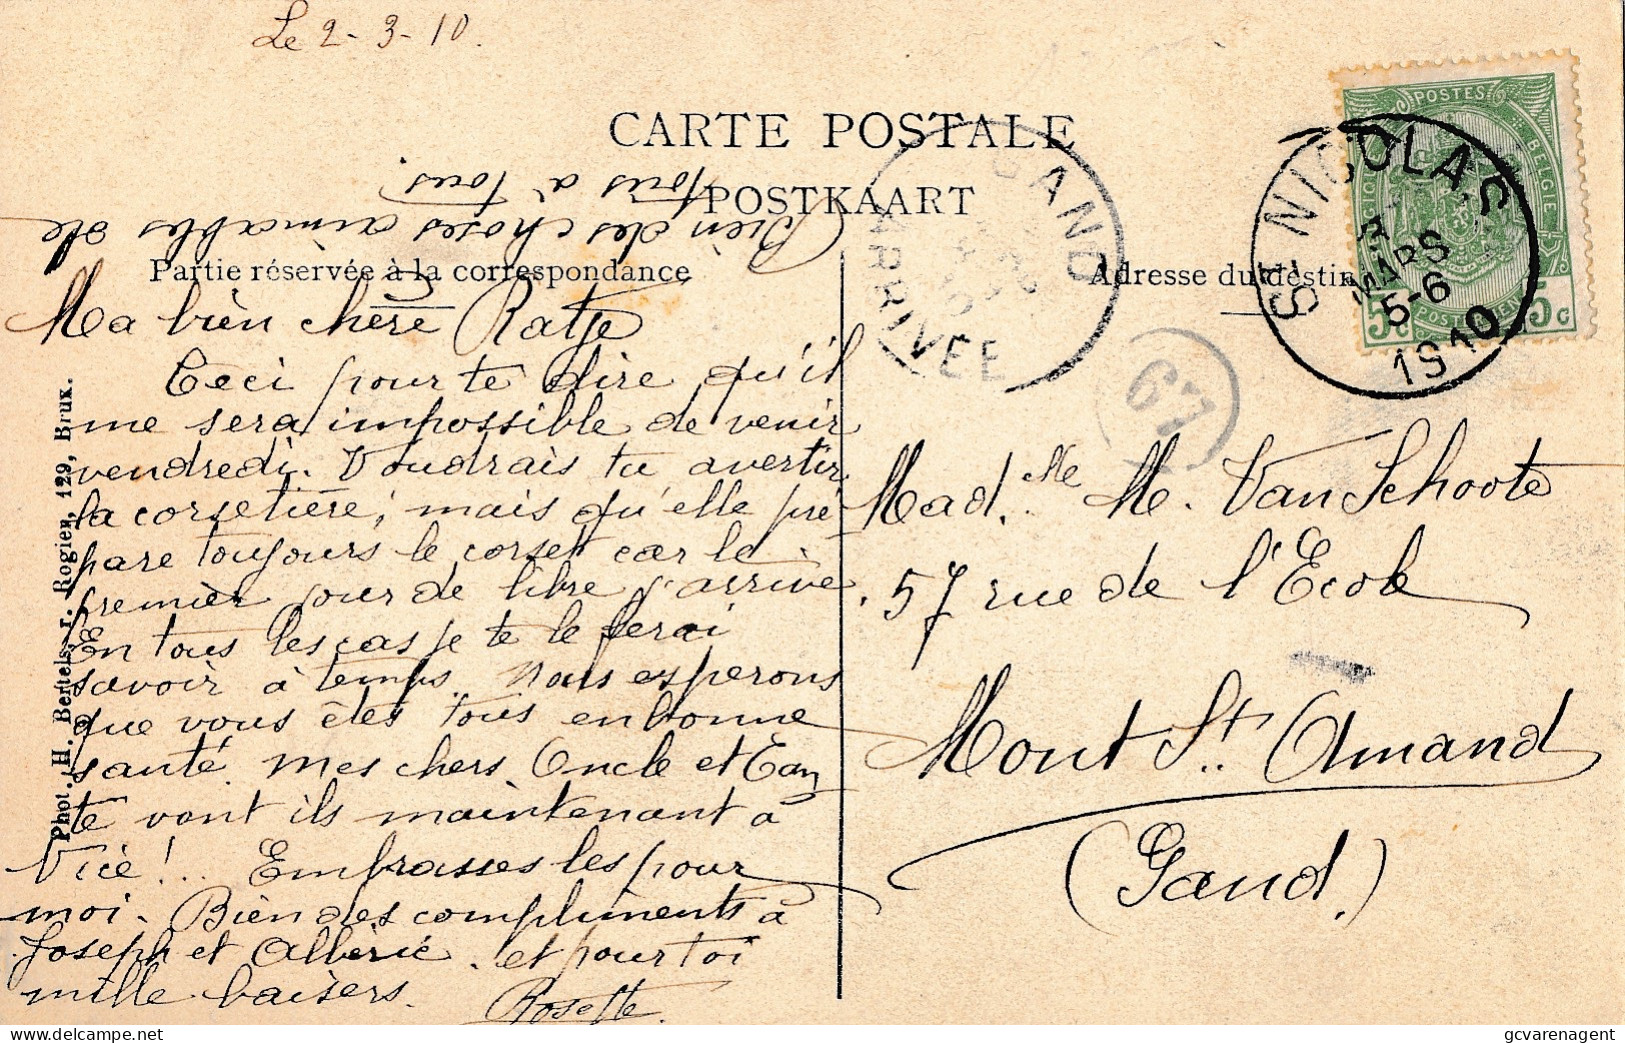 Le 2-3-10.
CARTE POSTALE
POSTKAART
Bien des choses aimables de
tous à tous.
Partie réservée à la correspondance
Adresse du destin
Ma bien chère Ratje
Ceci pour te dire qu'il
me sera impossible de venir
vendredi. Voudrais tu avertir
la corsetière, mais qu'elle pré
pare toujours le corset car le
premier jour de libre j'arrive.
En tous les cas je te le ferai
savoir à temps. Nous esperons
que vous êtes tous en bonne
santé. Mes chers Oncle et Tan
te vont ils maintenant à
Nice!.. Embrasses les pour
moi. Bien des compliments à
Joseph et Albérie. et pour toi
mille baisers.
Rosette.
Phot. H. Bertels, r. Rogier, 129, Brux.
Mad.elle M. Van Schoote
57 rue de l'Ecole
Mont St. Amand
(Gand.)
POSTES
BELGIE
BELGIQUE
POSTERIJEN
5c 5c
ST NICOLAS
3
MARS
5-6
1910
GAND
ARRIVEE
67
delcampe.net
gcvarenagent